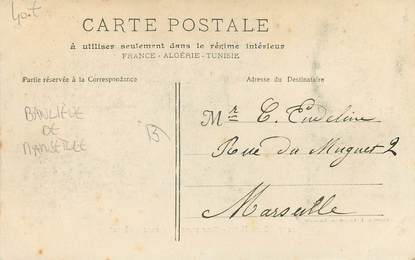 40.F
CARTE POSTALE
à utiliser seulement dans le régime intérieur
FRANCE - ALGÉRIE - TUNISIE
Partie réservée à la Correspondance
Adresse du Destinataire
BANLIEUE
DE
MARSEILLE
Mr E. Eudeline
Rue du Muguet 2
Marseille